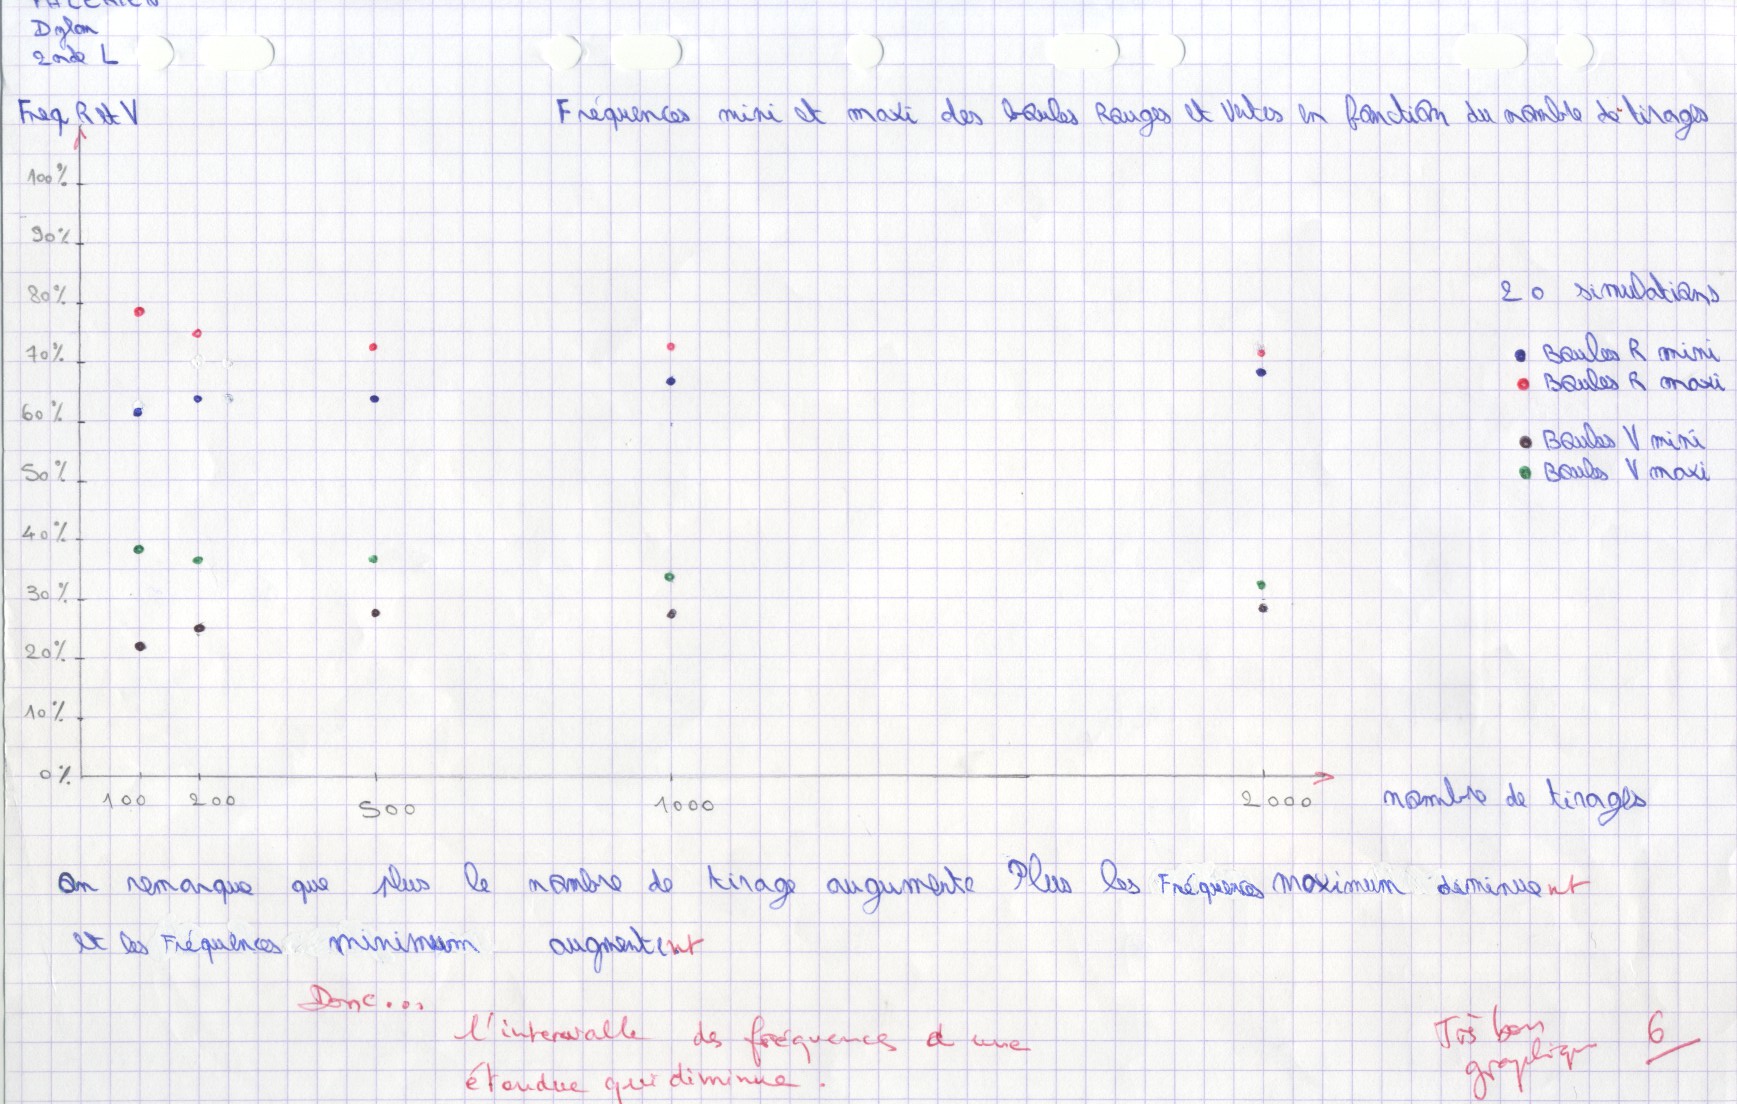 Dylan
2nde L
Freq R et V
Fréquences mini et maxi des boules Rouges et Vertes en fonction du nombre de tirages
100%
90%
80%
70%
60%
50%
40%
30%
20%
10%
0%
100 200 500 1000 2000
nombre de tirages
20 simulations
Boules R mini
Boules R maxi
Boules V mini
Boules V maxi
On remarque que plus le nombre de tirage augumente Plus les Fréquences maximum diminuent
et les Fréquences minimum augmentent
Donc...
l'intervalle des fréquences a une
étendue qui diminue.
Très bon
graphique
6